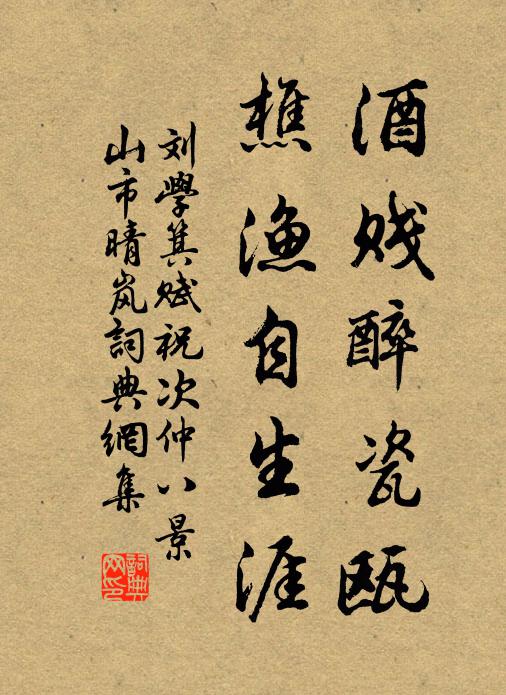 酒贱醉瓷瓯
樵渔自生涯
刘學箕赋祝次仲八景
山市晴岚詞典網集
詞典网印